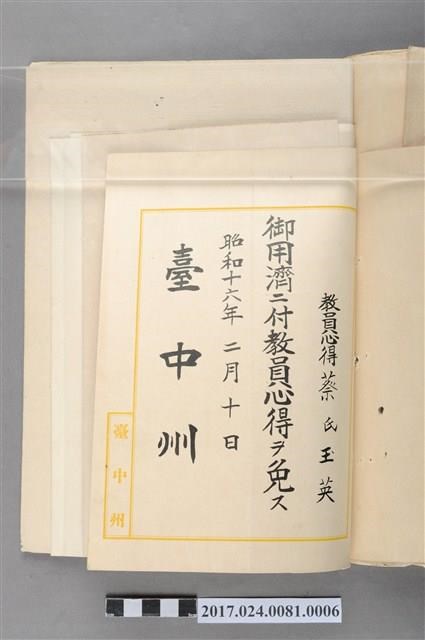 教員心得 蔡氏玉英
御用濟ニ付教員心得ヲ免ス
昭和十六年二月十日
臺中州
臺中州
2017.024.0081.0006